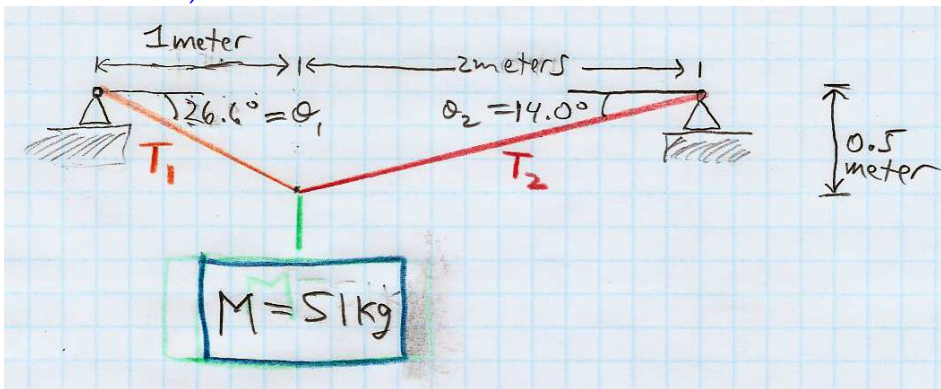 1 meter
2 meters
26.6° = θ₁
θ₂ = 14.0°
T₁
T₂
0.5
meter
M = 51kg